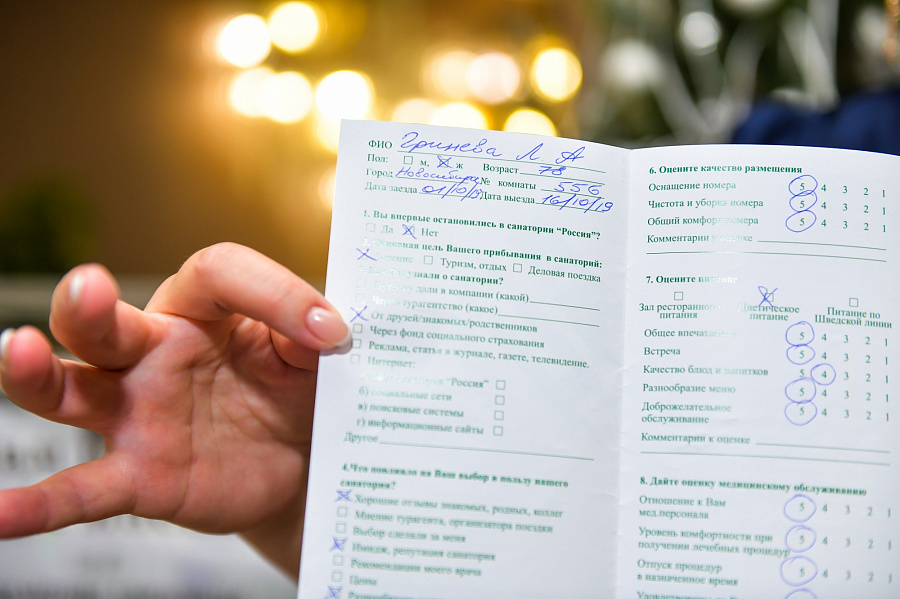 ФИО Гринева Л А
Пол: м, ж Возраст 78
Город Новосибирск № комнаты 556
Дата заезда 01/10/19 Дата выезда 16/10/19
1. Вы впервые остановились в санатории “Россия”?
Да Нет
Основная цель Вашего прибывания в санаторий:
Туризм, отдых Деловая поездка
узнали о санатории?
дали в компании (какой)
Через турагентство (какое)
От друзей/знакомых/родственников
Через фонд социального страхования
Реклама, статья в журнале, газете, телевидение.
Интернет:
“Россия”
б) социальные сети
в) поисковые системы
г) информационные сайты
Другое
4.Что повлияло на Ваш выбор в пользу нашего
санатория?
Хорошие отзывы знакомых, родных, коллег
Мнение турагента, организатора поездки
Выбор сделали за меня
Имидж, репутация санатория
Рекомендация моего врача
Цены
6. Оцените качество размещения
Оснащение номера 5 4 3 2 1
Чистота и уборка номера 5 4 3 2 1
Общий комфорт номера 5 4 3 2 1
Комментарии к оценке
7. Оцените питание
Зал ресторанного питания Диетическое питание Питание по Шведской линии
Общее впечатление 5 4 3 2 1
Встреча 5 4 3 2 1
Качество блюд и напитков 5 4 3 2 1
Разнообразие меню 5 4 3 2 1
Доброжелательное
обслуживание 5 4 3 2 1
Комментарии к оценке
8. Дайте оценку медицинскому обслуживанию
Отношение к Вам
мед.персонала 5 4 3 2 1
Уровень комфортности при
получении лечебных процедур 5 4 3 2 1
Отпуск процедур
в назначенное время 5 4 3 2 1